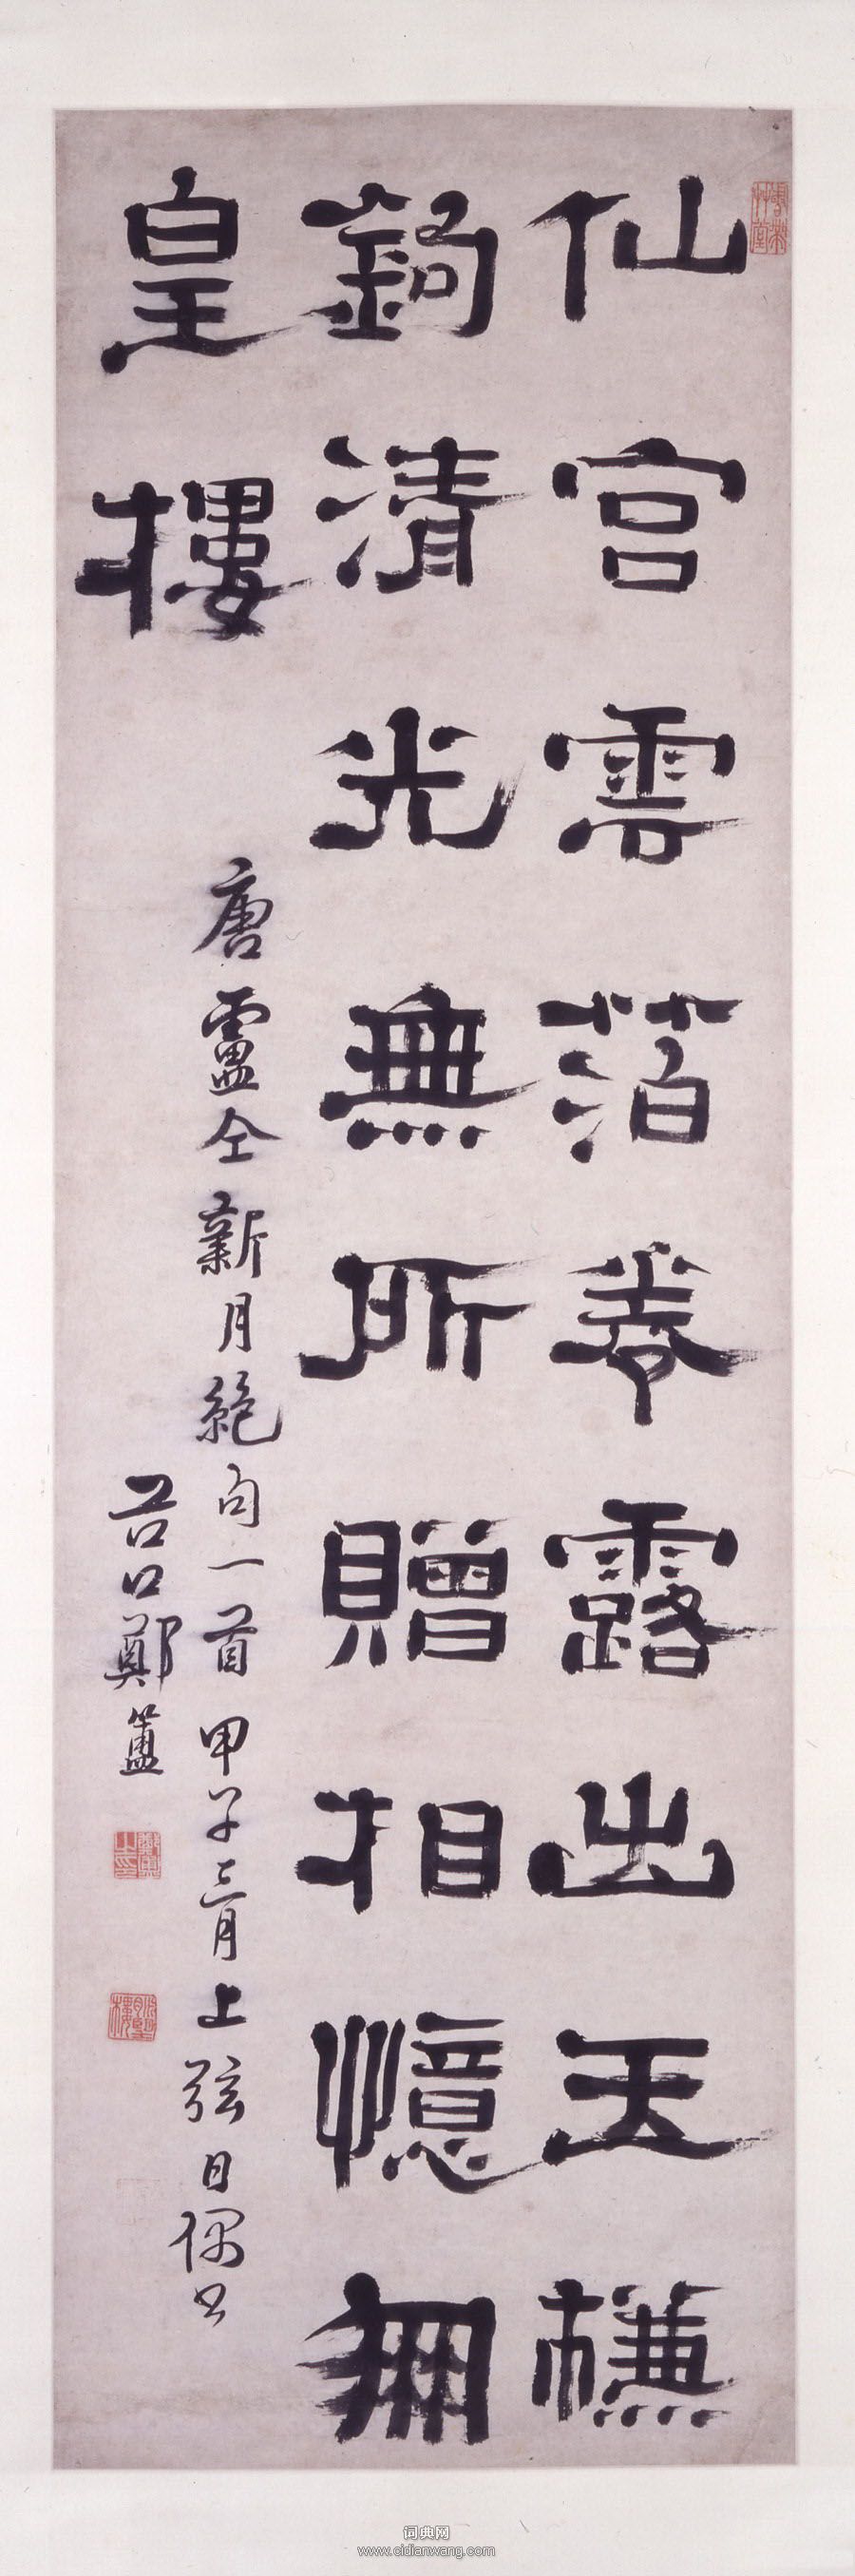 仙宮雲萡卷露出玉槏
鉤清光無所贈相憶鳳
皇樓
唐盧仝新月絕句一首甲子三月上弦日偶書
谷口鄭簠
鄭簠之印
词典网
www.cidianwang.com